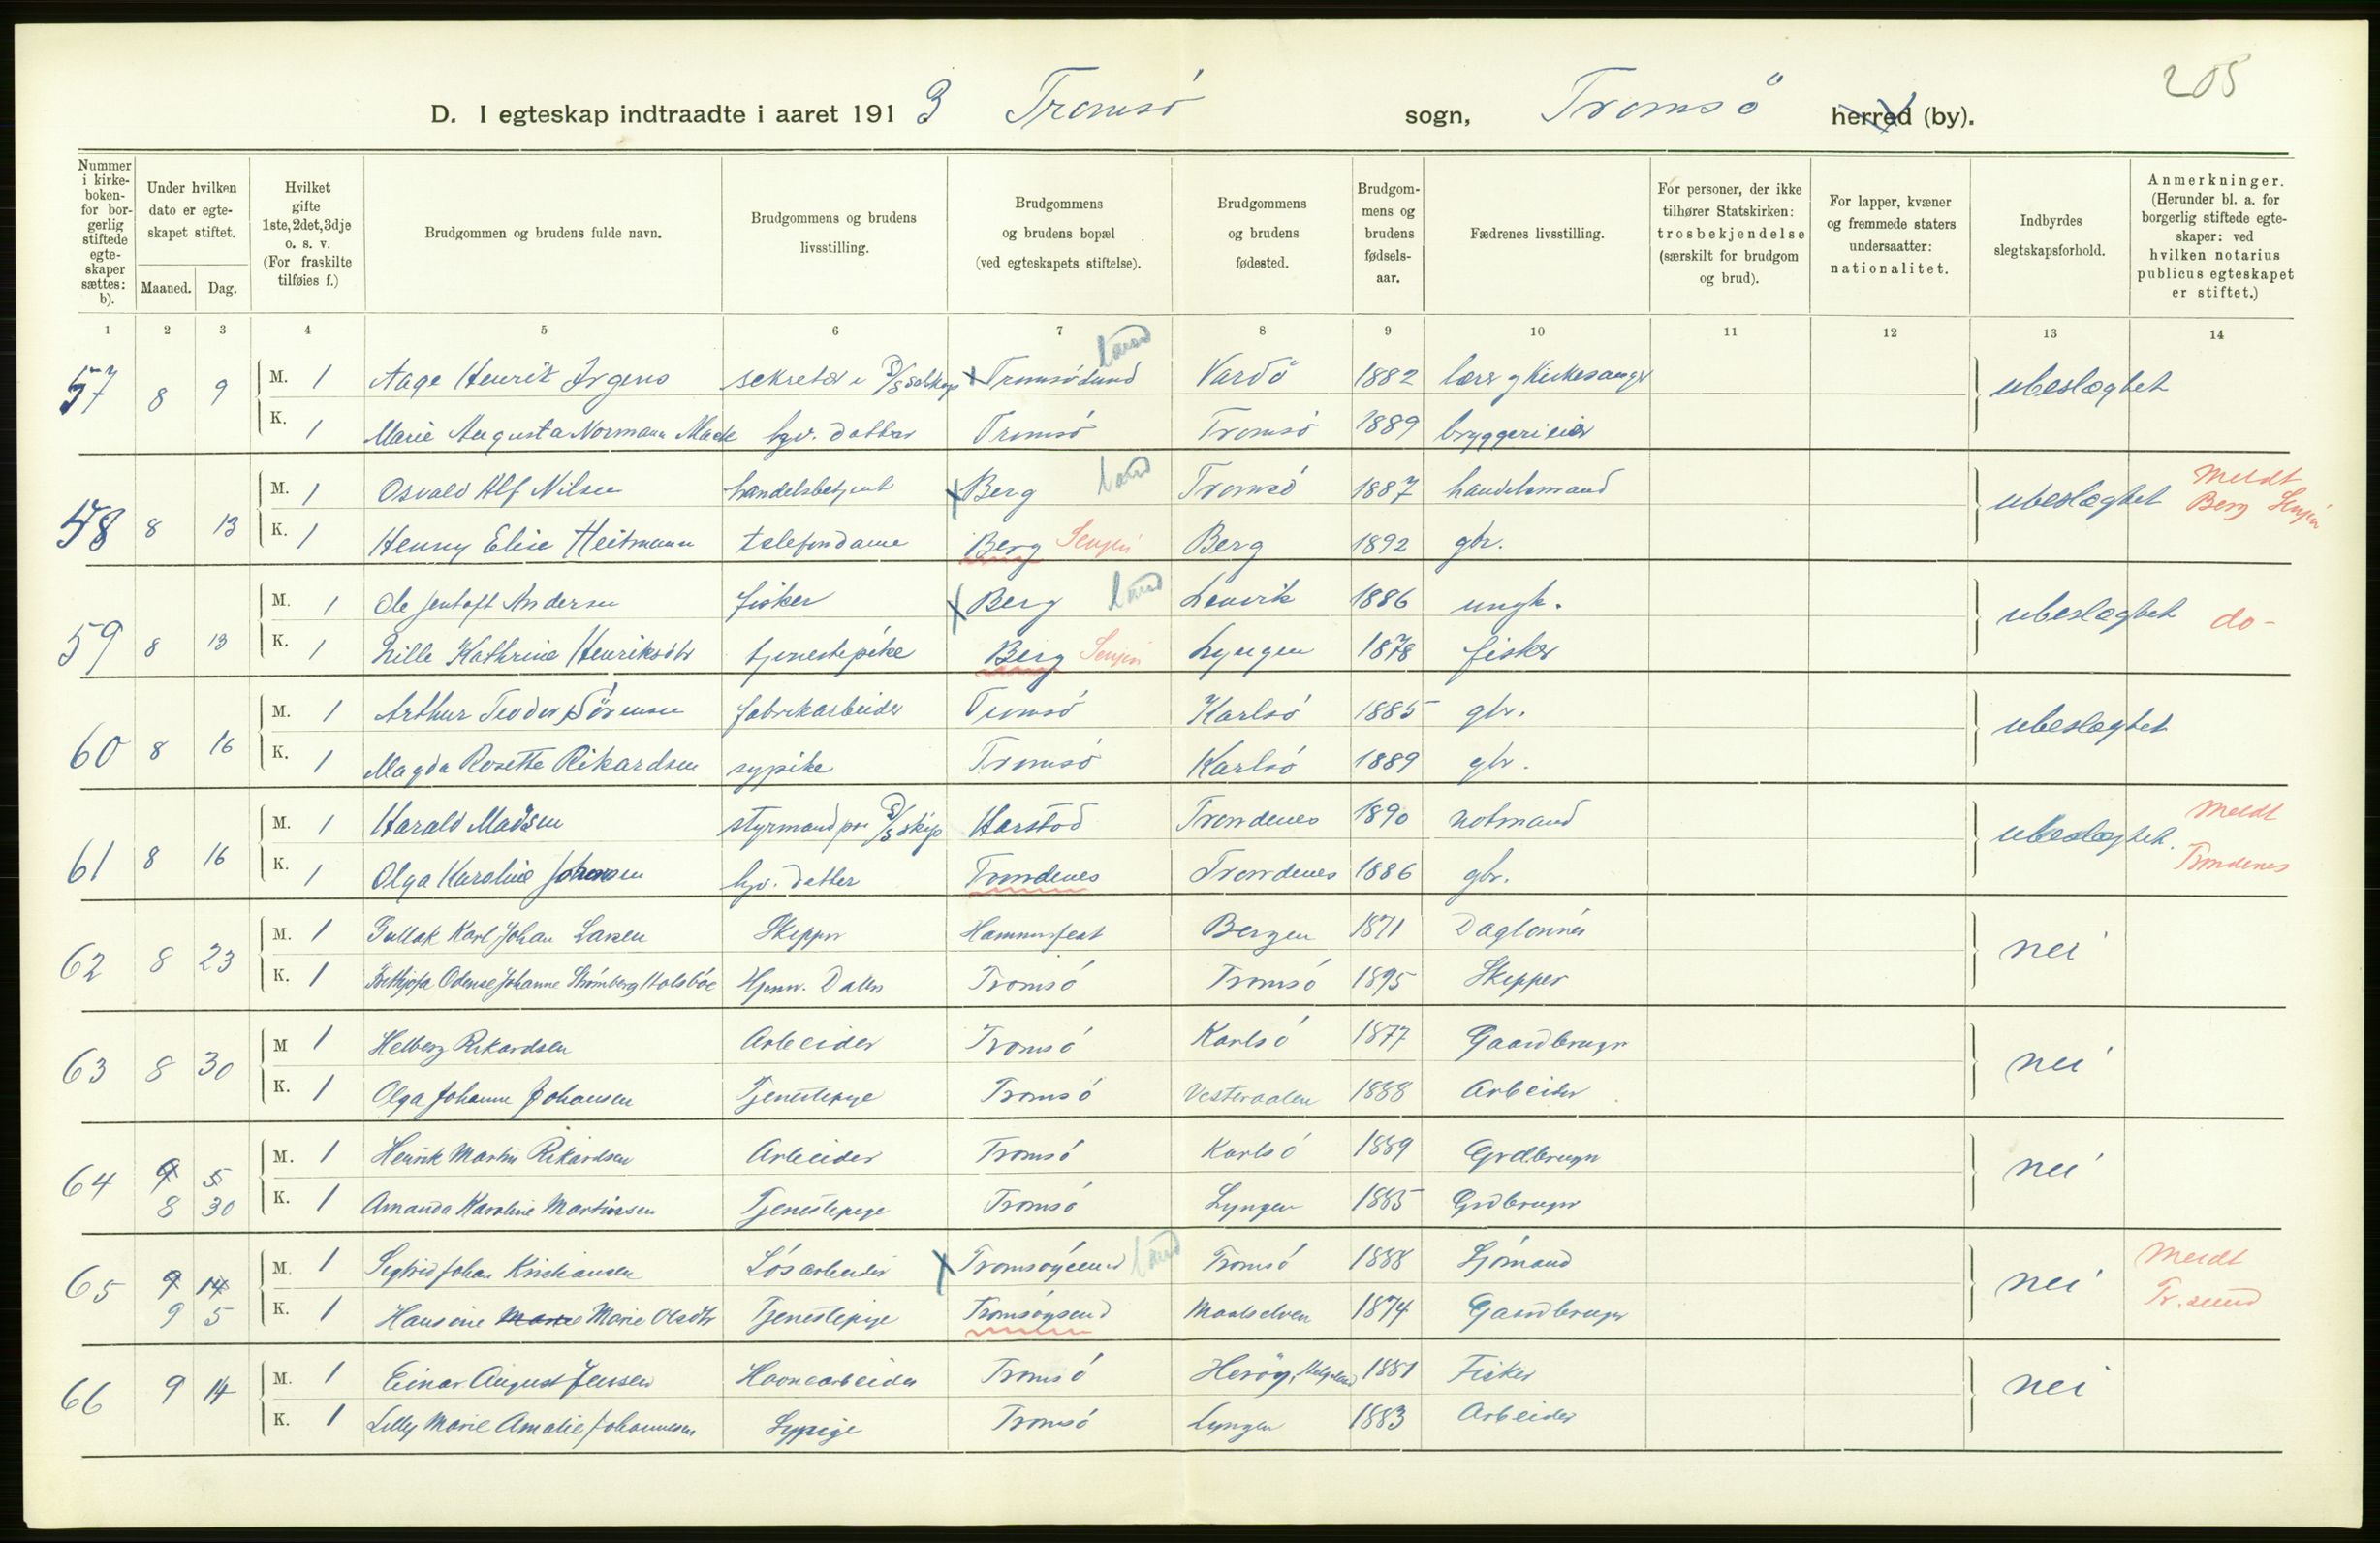 205
D. I egteskap indtraadte i aaret 1913 Tromsó sogn, Tromsö herred (by).
Nummer i kirkeboken- for borgerlig stiftede egteskaper sættes: b).
Under hvilken dato er egteskapet stiftet.
Maaned. Dag.
Hvilket gifte 1ste, 2det, 3dje o. s. v. (For fraskilte tilføies f.)
Brudgommen og brudens fulde navn.
Brudgommens og brudens livsstilling.
Brudgommens og brudens bopæl (ved egteskapets stiftelse).
Brudgommens og brudens fødested.
Brudgommens og brudens fødsels-aar.
Fædrenes livsstilling.
For personer, der ikke tilhører Statskirken: trosbekjendelse (særskilt for brudgom og brud).
For lapper, kvæner og fremmede staters undersaatter: nationalitet.
Indbyrdes slegtskapsforhold.
Anmerkninger. (Herunder bl. a. for borgerlig stiftede egteskaper: ved hvilken notarius publicus egteskapet er stiftet.)
1 2 3 4 5 6 7 8 9 10 11 12 13 14
57 8 9 M. 1 Aage Henrik Irgens sekretær i D/S selskap x Tromsösund Land Vardö 1882 lærer og Kirkesanger ubeslægtet
K. 1 Marie Augusta Normann Mack hjv. datter Tromsó Tromsó 1889 bryggerieier
58 8 13 M. 1 Osvald Alf Nilsen handelsbetjent x Berg Land Tromsó 1887 handelsmand ubeslægtet Meldt Berg Senjen
K. 1 Henny Elise Heitmann telefondame Berg Senjen Berg 1892 gbr.
59 8 13 M. 1 Ole Jentoft Andersen fisker x Berg Land Lenvik 1886 ungk. ubeslægtet do-
K. 1 Nille Kathrine Henriksdtr tjenestepike Berg Senjen Lyngen 1878 fisker
60 8 16 M. 1 Arthur Teodor Sörensen fabrikarbeider Tromsó Karlsó 1885 gbr. ubeslægtet
K. 1 Magda Rosette Rikardsen sypike Tromsó Karlsó 1889 gbr.
61 8 16 M. 1 Harald Madsen styrmand paa D/S skip Harstad Trondenes 1890 notmand ubeslægtet. Meldt Trondenes
K. 1 Olga Karoline Johansen hjv. datter Trondenes Trondenes 1886 gbr.
62 8 23 M. 1 Karl Johan Larsen Skipper Hammerfest Bergen 1871 Daglönner nei
K. 1 Odense Johanne Strömberg Holsböe Hjemv. Datter Tromsó Tromsó 1895 Skipper
63 8 30 M 1 Helberg Rikardsen Arbeider Tromsó Karlsó 1877 Gaardbruger nei
K. 1 Olga Johanne Johansen Tjenestepige Tromsó Vesteraalen 1888 Arbeider
64 9 5 M. 1 Henrik Martin Rikardsen Arbeider Tromsó Karlsó 1889 Grdbruger nei
8 30 K. 1 Amanda Karoline Martinsen Tjenestepige Tromsó Lyngen 1885 Grdbruger
65 9 14 M. 1 Sigfrid Johan Kristiansen Lósarbeider x Tromsóysund Land Tromsó 1888 Sjómand nei Meldt Tr.sund
9 5 K. 1 Hansine Marie Marie Olsdtr Tjenestepige Tromsóysund Maalselven 1874 Gaardbruger
66 9 14 M. 1 Einar August Jensen Havnearbeider Tromsó Heröy, Helgeland 1881 Fisker nei
K. 1 Lilly Marie Amalie Johannesen Sypige Tromsó Lyngen 1883 Arbeider